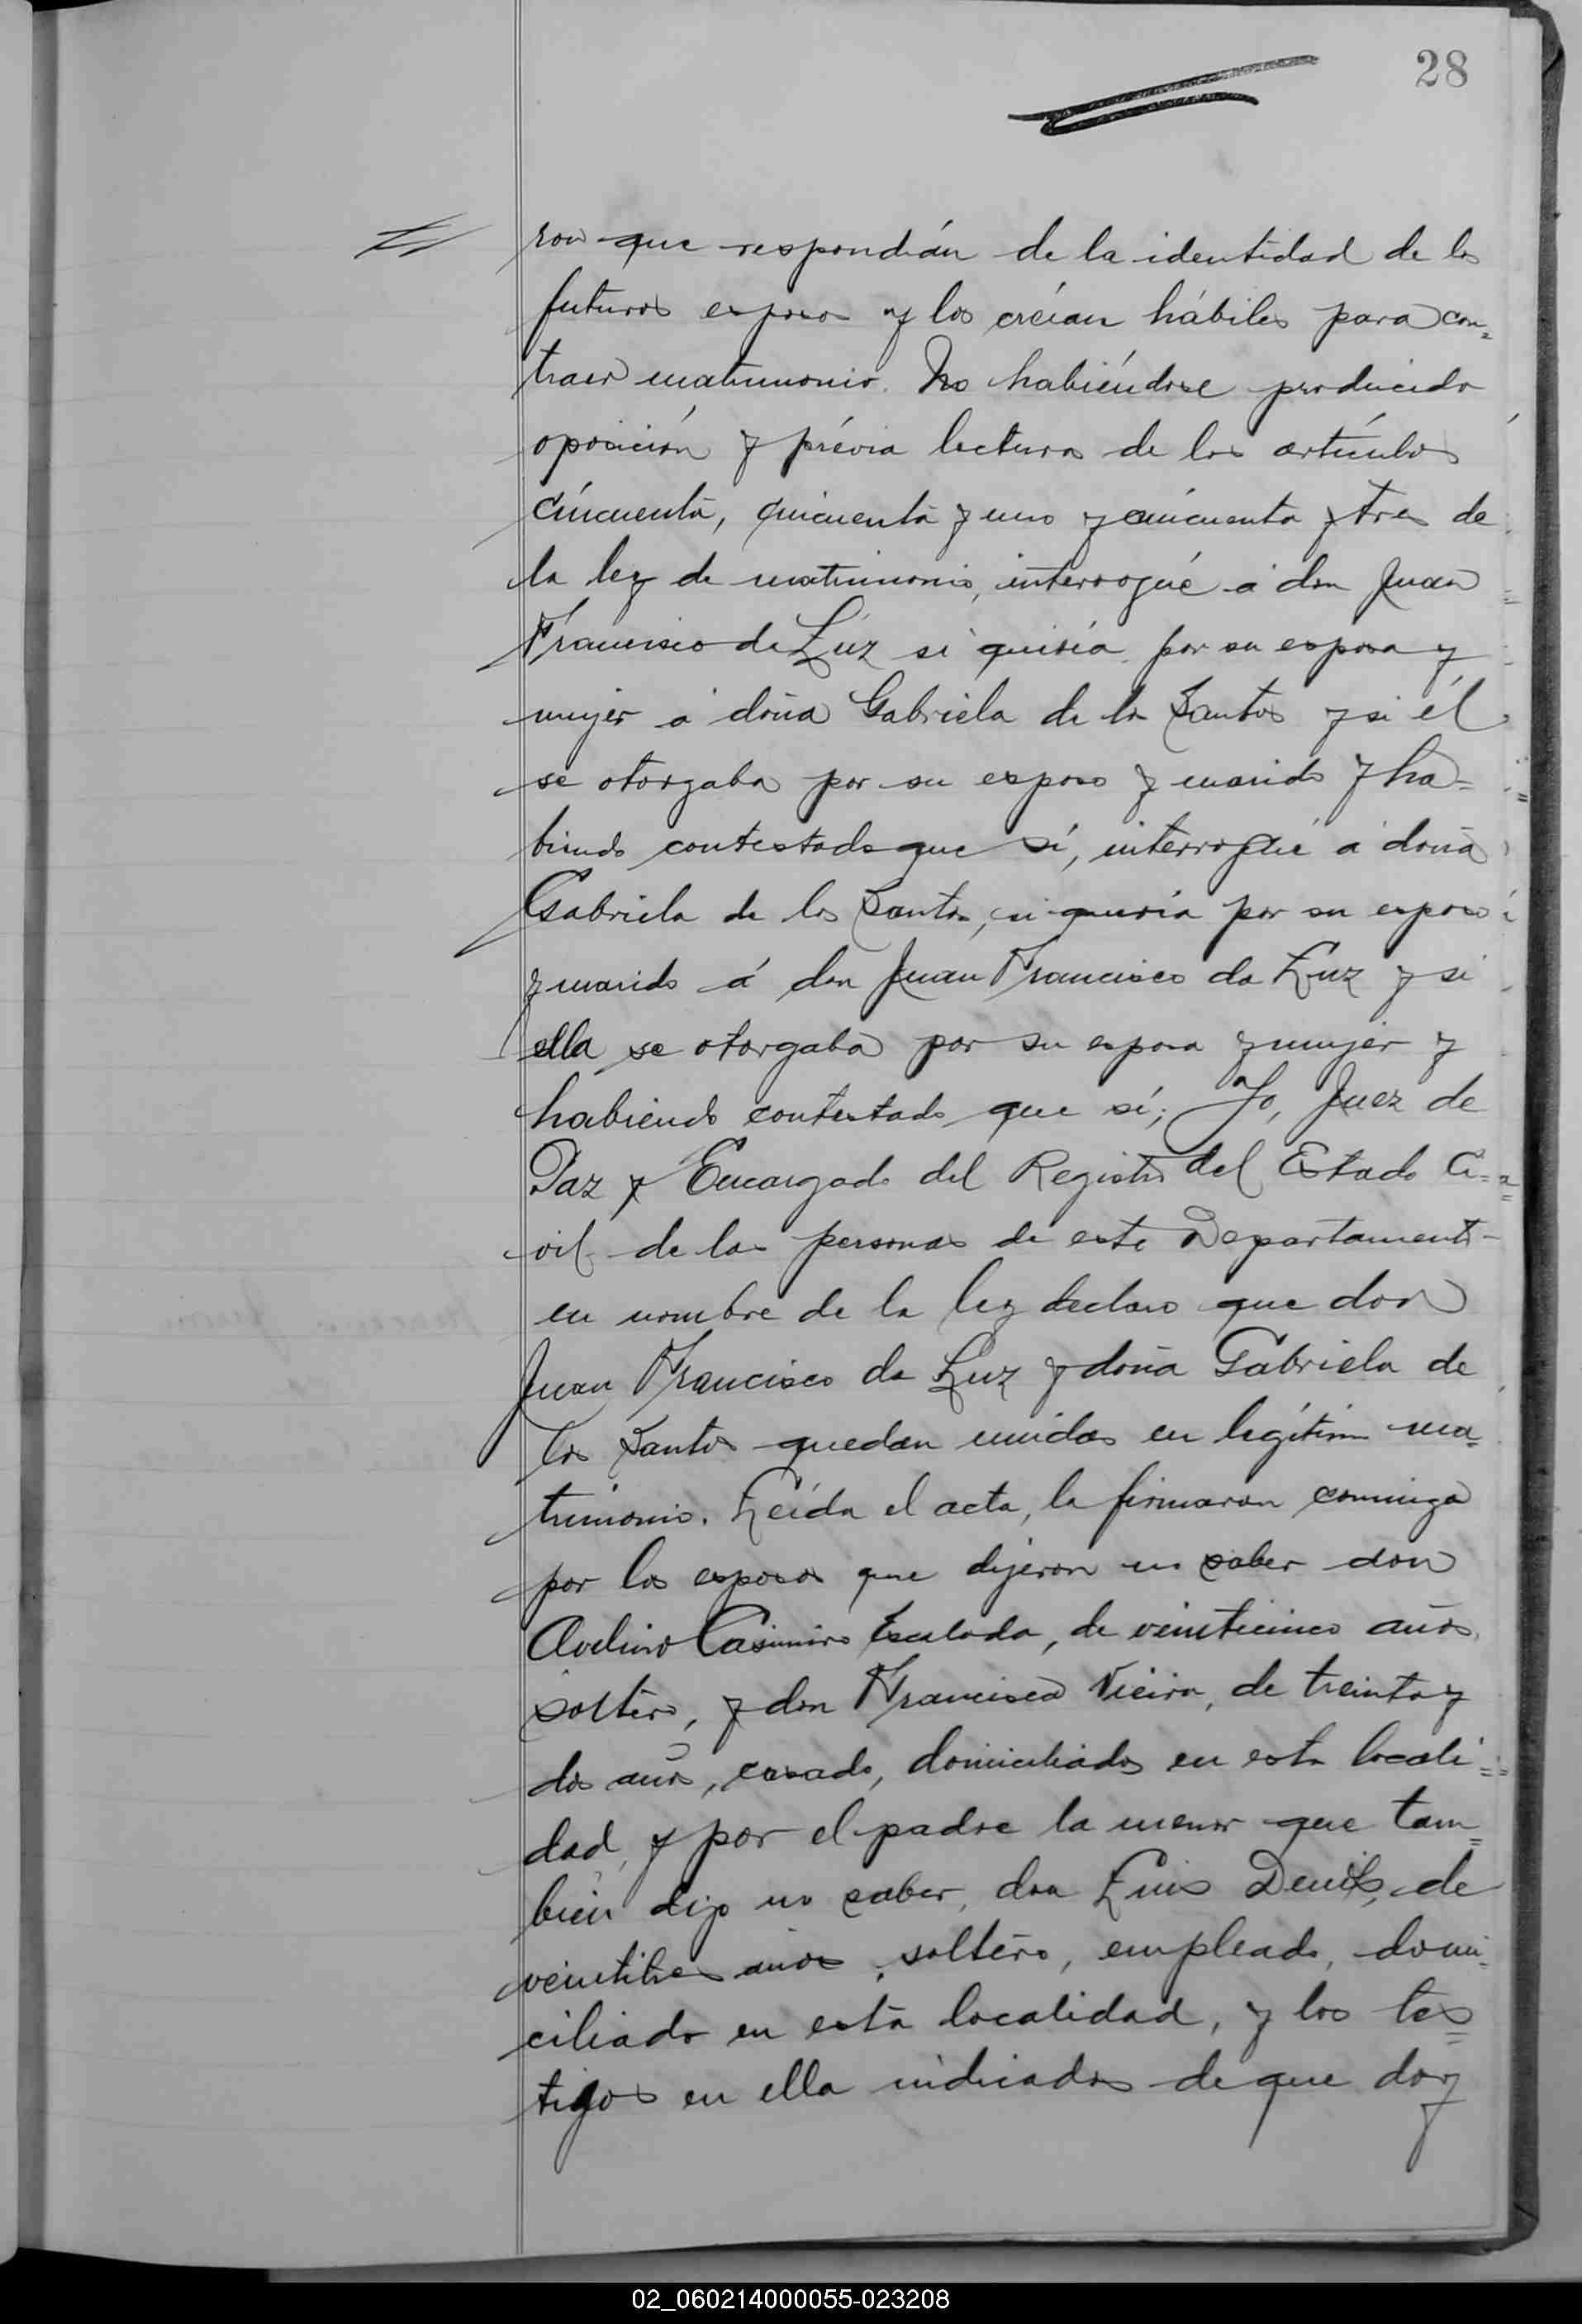 28
ron que respondían de la identidad de los
futuros esposos y los creían hábiles para con=
traer matrimonio. No habiéndose producido
oposición y prévia lectura de los artículos
cincuenta, cincuenta y uno y cincuenta y tres de
la ley de matrimonio, interrogué á don Juan
Francisco da Luz si quería por su esposa y
mujer á doña Gabriela de los Santos y si él
se otorgaba por su esposo y marido y ha=
biendo contestado que sí, interrogué á doña
Gabriela de los Santos, si quería por su esposo
y marido á don Juan Francisco da Luz y si
ella se otorgaba por su esposa y mujer y
habiendo contestado que sí; Yo, Juez de
Paz y Encargado del Registro del Estado Ci=
vil de las personas de este Departamento
en nombre de la ley declaro que don
Juan Francisco da Luz y doña Gabriela de
los Santos quedan unidos en legítimo ma=
trimonio. Leída el acta, la firmaron conmigo
por los esposos que dijeron no saber don
Avelino Casimiro Escalada, de veinticinco años,
soltero, y don Francisco Vieira, de treinta y
dos años, casado, domiciliados en esta locali=
dad, y por el padre la menor que tam=
bién dijo no saber, don Luis Denis, de
veintitres años, soltero, empleado, domi=
ciliado en esta localidad, y los tes=
tigos en ella indicados de que doy
02_060214000055-023208